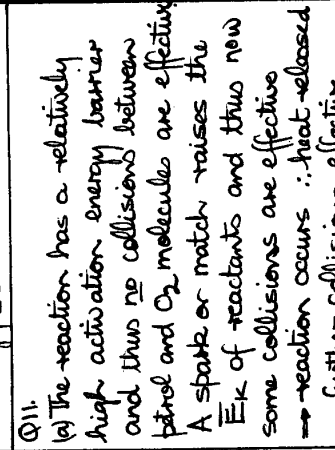 Q11.
(a) The reaction has a relatively
high activation energy barrier
and thus no collisions between
petrol and O₂ molecules are effective
A spark or match raises the
E̅ₖ of reactants and thus now
some collisions are effective
→ reaction occurs ∴ heat released
collisions effective